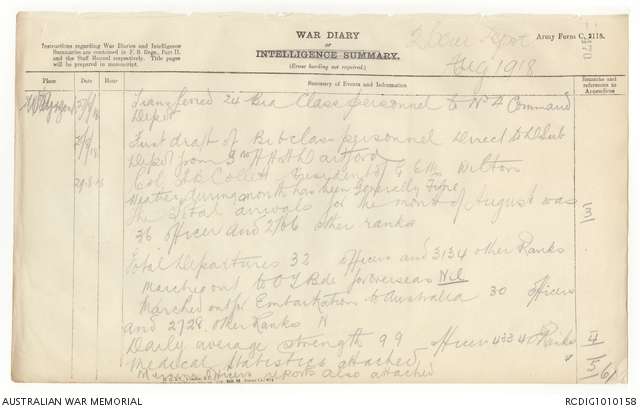 WAR DIARY
or
INTELLIGENCE SUMMARY.
(Erase heading not required.)
Instructions regarding War Diaries and Intelligence
Summaries are contained in F. S. Regs., Part II.
and the Staff Manual respectively. Title pages
will be prepared in manuscript.
Army Form C. 2118.
Depot
Aug 1918
Place
Date
Hour
Summary of Events and Information
Remarks and references to Appendices
Transferred 24 Bia Class personnel to No 4 Command
Depot
First draft of Bib class personnel Direct to
Depot from 3rd A A H Dartford
Col Collett
29.8.18
Weather during month has been generally Fine
The total arrivals for the month of August was
36 officer and 2766 other ranks
3
Total Departures 32 officers and 3134 other Ranks
Marching out to O T Bde for overseas Nil
Marched out for Embarkation to Australia 30 officers
and 2728 other Ranks
Daily average strength 99 officer 4334 O Ranks
4
Medical Statistics attached
5
reports also attached
6
AUSTRALIAN WAR MEMORIAL
RCDIG1010158